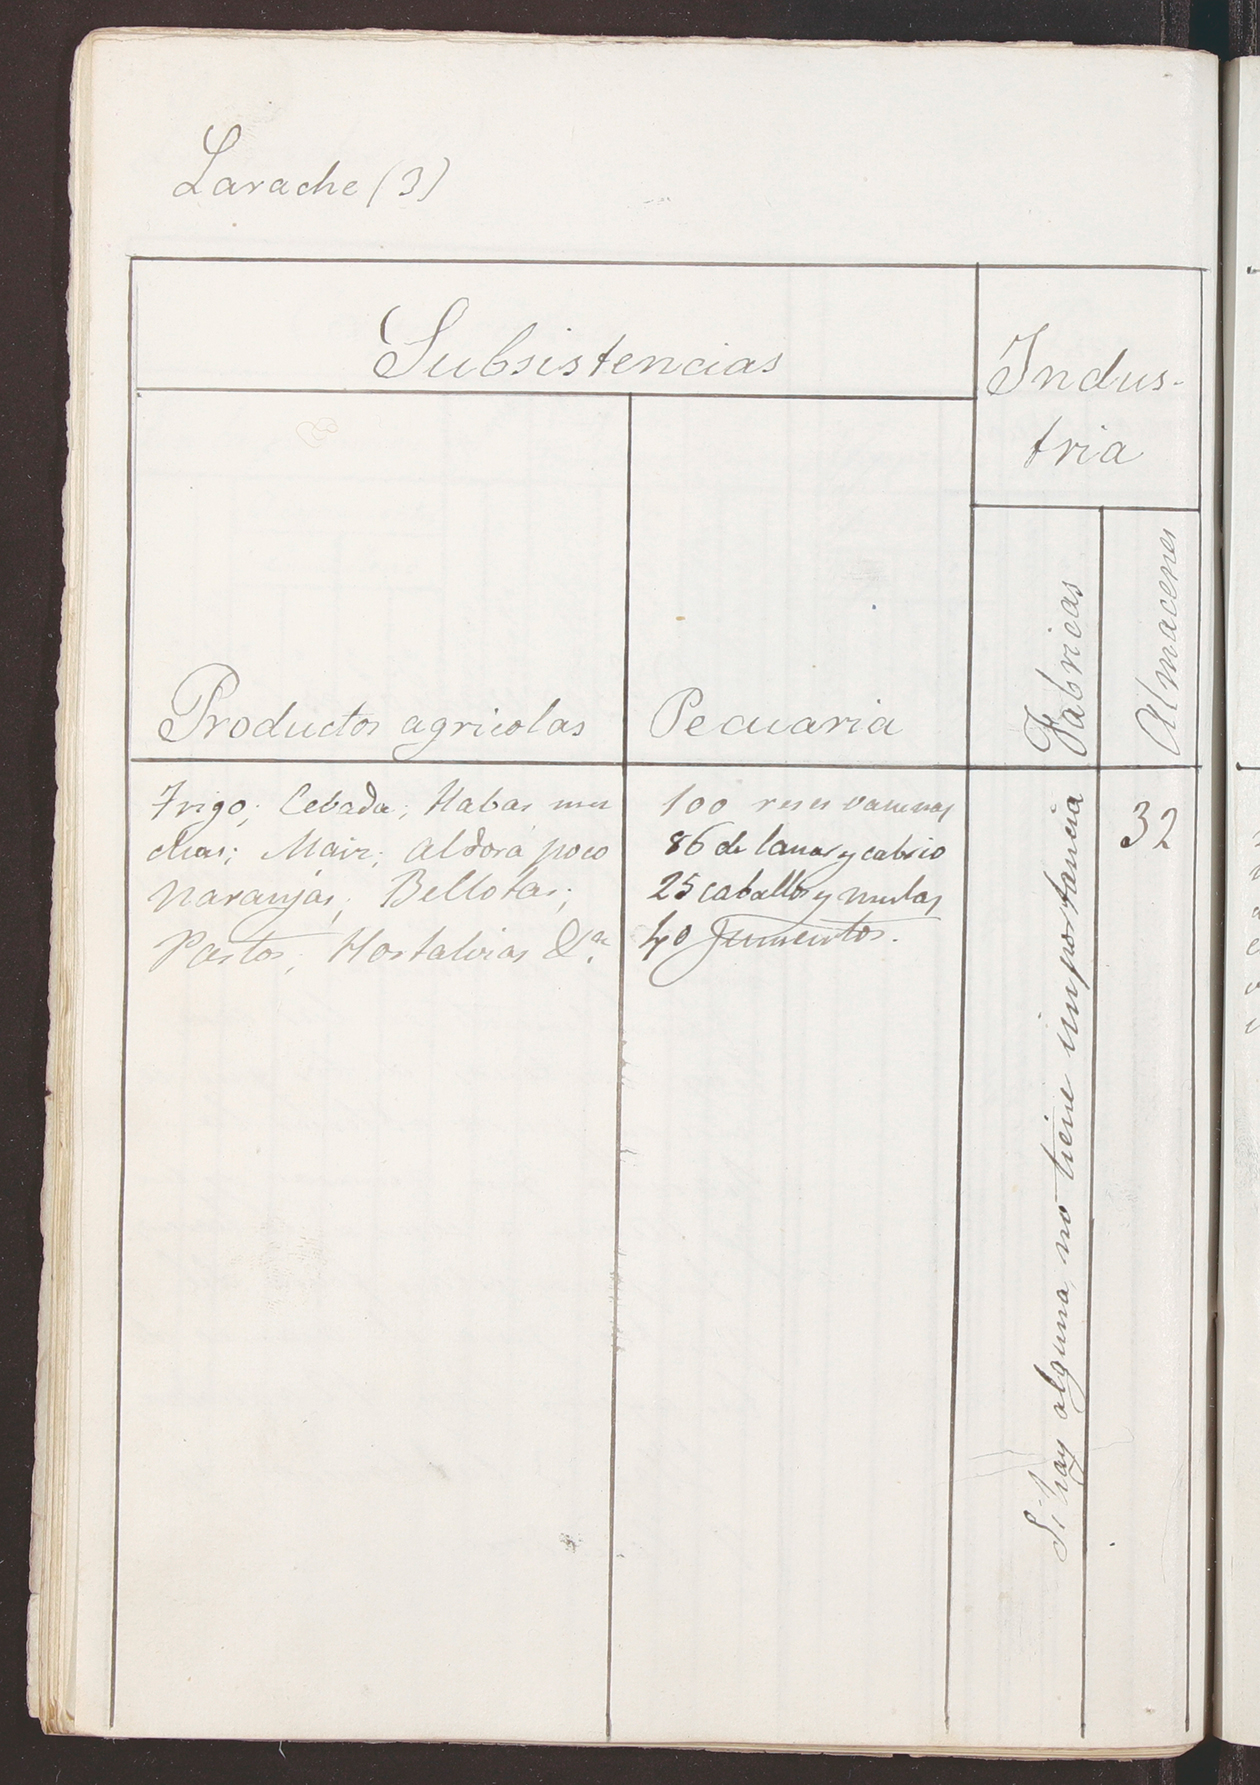 Larache (3)
Subsistencias
Indus-
tria
Productos agricolas
Pecuaria
Fabricas
Almacenes
Trigo; Cebada; Habas mu
chas; Maiz; Aldora poco
Naranjas; Bellotas;
Pastos; Hortalizas &ª.
100 reses vacunas
86 de lanar y cabrio
25 caballos y mulas
40 Jumentos.
Si hay alguna, no tiene importancia
32